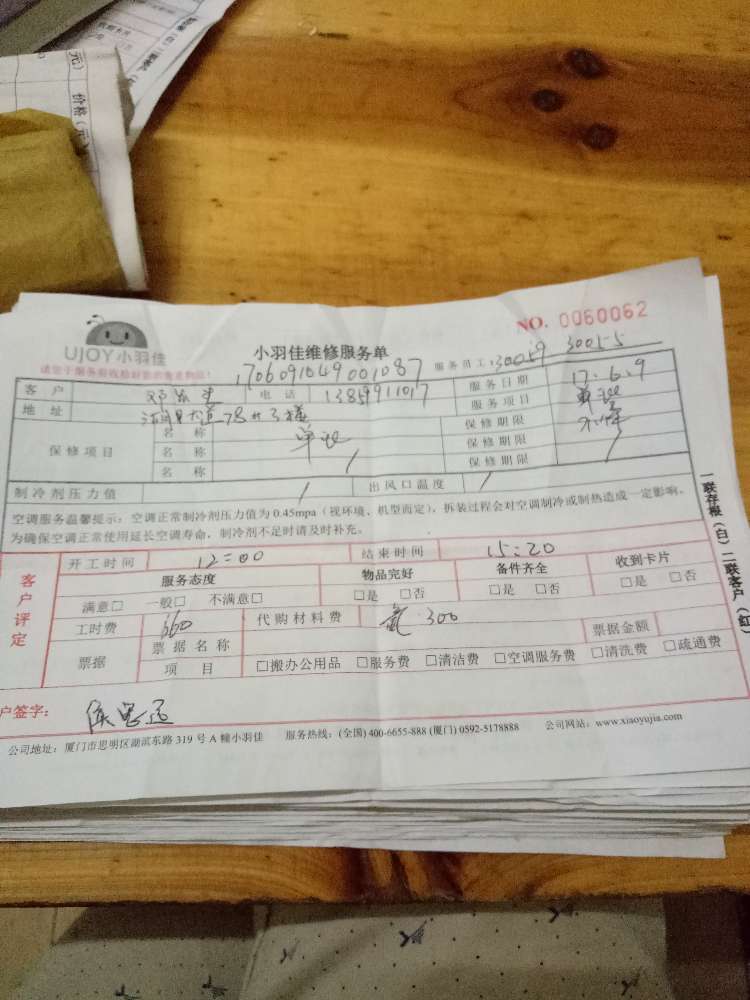 价格（元）
NO. 0060062
UJOY小羽佳
小羽佳维修服务单
1706091049001087
服务员工：30059 30055
客户 电话 13859911017 服务日期 17.6.9
地址 服务项目
保修项目 名称 保修期限
名称 / 保修期限
名称 保修期限 /
制冷剂压力值 / 出风口温度 /
空调服务温馨提示：空调正常制冷剂压力值为 0.45mpa（视环境、机型而定），拆装过程会对空调制冷或制热造成一定影响，
为确保空调正常使用延长空调寿命，制冷剂不足时请及时补充。
客户评定
开工时间 12:00 结束时间 15:20
服务态度 物品完好 备件齐全 收到卡片
满意□ 一般□ 不满意□ □是 □否 □是 □否 □是 □否
工时费 360 代购材料费 氟·300
票据 票据名称 票据金额
项目 □搬办公用品 □服务费 □清洁费 □空调服务费 □清洗费 □疏通费
户签字：
公司地址：厦门市思明区湖滨东路 319 号 A 幢小羽佳 服务热线：(全国) 400-6655-888 (厦门) 0592-5178888 公司网站：www.xiaoyujia.com
一联存根（白）二联客户（红）